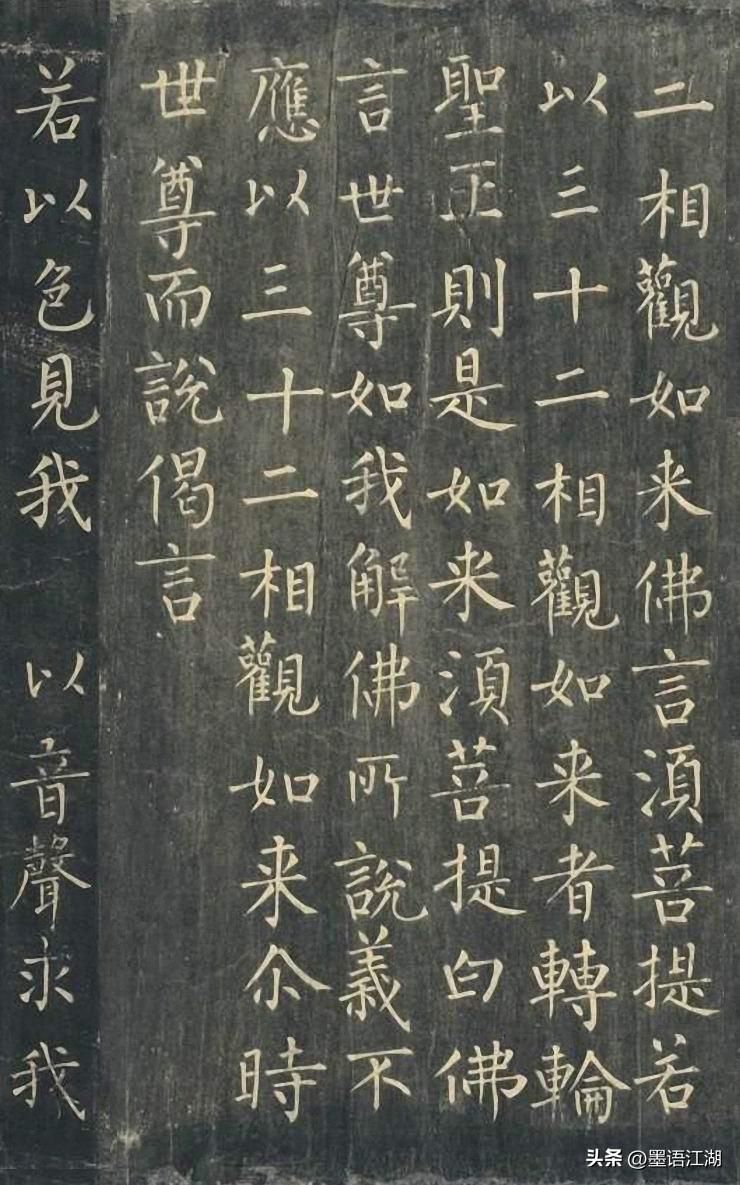 二相觀如来佛言湏菩提若
以三十二相觀如来者轉輪
聖王則是如来湏菩提白佛
言世尊如我解佛所說義不
應以三十二相觀如来尒時
世尊而說偈言
若以色見我 以音聲求我
头条 @墨语江湖